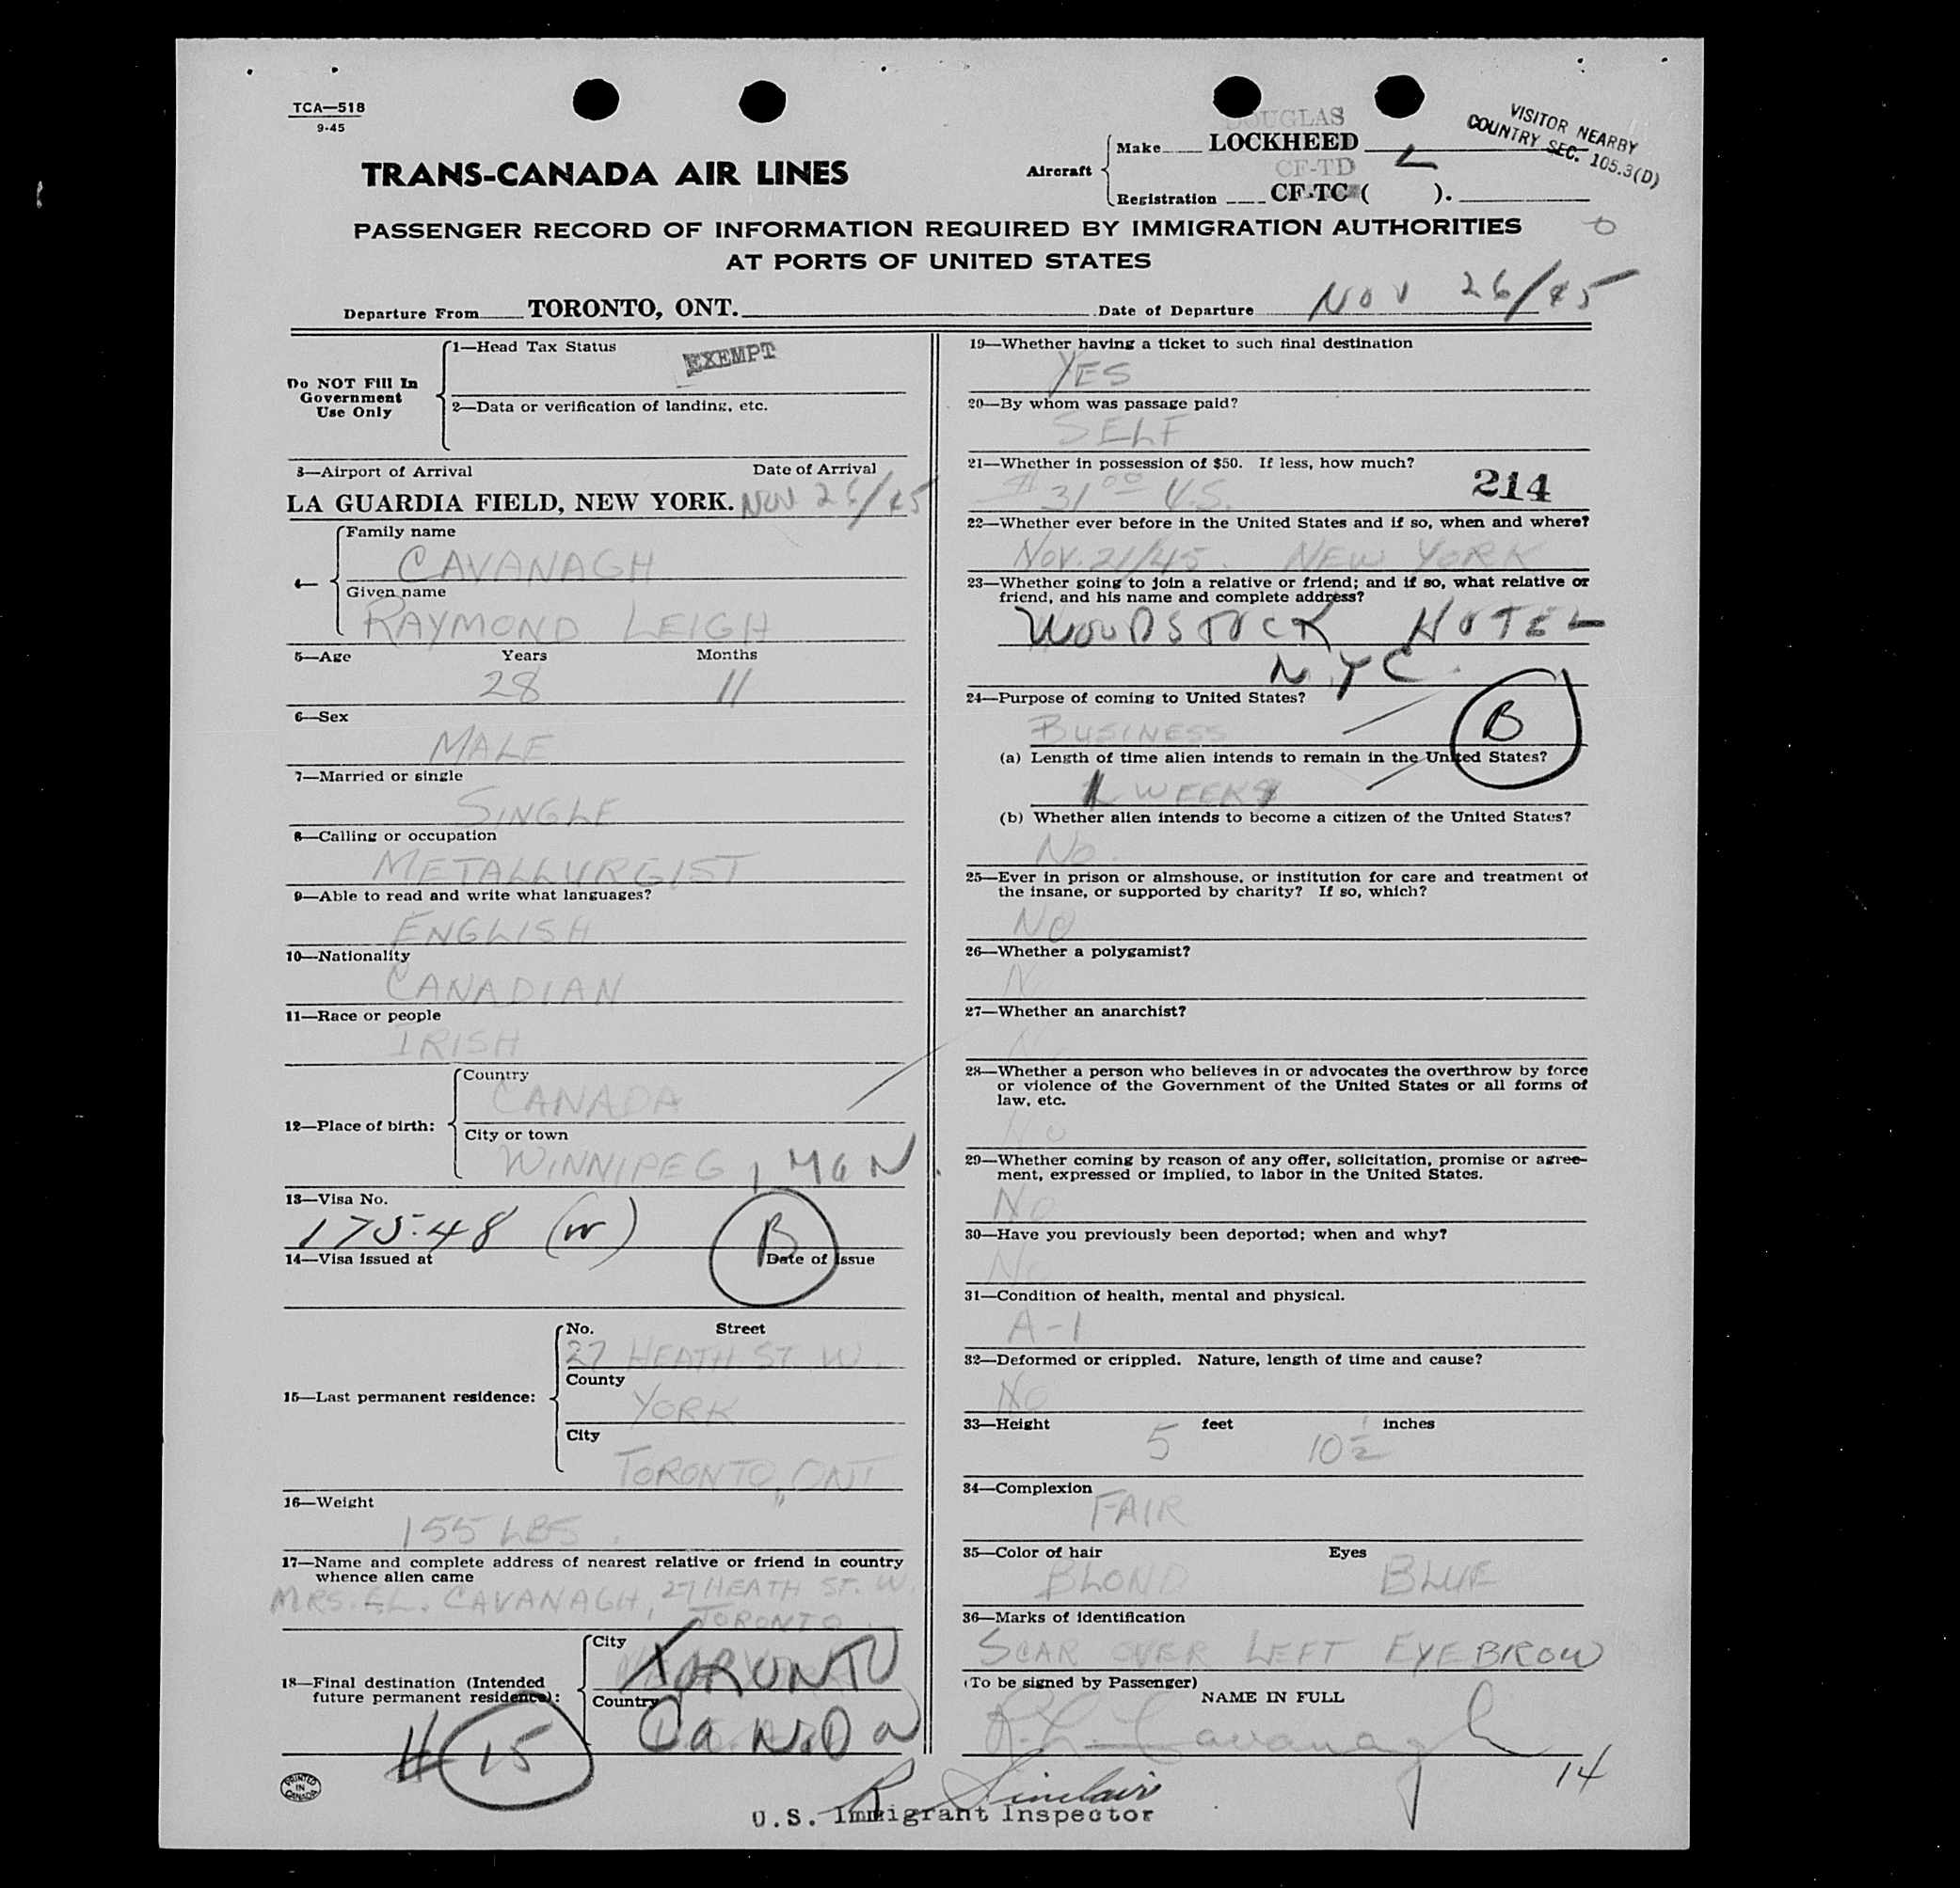 TCA—518
9-45
TRANS-CANADA AIR LINES
Aircraft
DOUGLAS
Make LOCKHEED L
CF-TD
Registration CF-TC ( ).
VISITOR NEARBY
COUNTRY SEC. 105.3(D)
PASSENGER RECORD OF INFORMATION REQUIRED BY IMMIGRATION AUTHORITIES
AT PORTS OF UNITED STATES
Departure From TORONTO, ONT. Date of Departure NOV 26/45
Do NOT Fill In
Government
Use Only
1—Head Tax Status
EXEMPT
2—Data or verification of landing, etc.
3—Airport of Arrival Date of Arrival
LA GUARDIA FIELD, NEW YORK. NOV 26/45
4—
Family name
CAVANAGH
Given name
RAYMOND LEIGH
5—Age Years Months
28 11
6—Sex
MALE
7—Married or single
SINGLE
8—Calling or occupation
METALLURGIST
9—Able to read and write what languages?
ENGLISH
10—Nationality
CANADIAN
11—Race or people
IRISH
12—Place of birth:
Country
CANADA
City or town
WINNIPEG, MAN.
13—Visa No.
175.48 (W) B
14—Visa issued at Date of Issue
15—Last permanent residence:
No. Street
27 HEATH ST. W.
County
YORK
City
TORONTO, ONT
16—Weight
155 LBS.
17—Name and complete address of nearest relative or friend in country
whence alien came
MRS. E.L. CAVANAGH, 27 HEATH ST. W.
TORONTO.
18—Final destination (Intended
future permanent residence):
City
TORONTO
Country
CANADA
# 15
PRINTED
IN
CANADA
19—Whether having a ticket to such final destination
YES
20—By whom was passage paid?
SELF
21—Whether in possession of $50. If less, how much?
$31.00 U.S. 214
22—Whether ever before in the United States and if so, when and where?
NOV. 21/45. NEW YORK
23—Whether going to join a relative or friend; and if so, what relative or
friend, and his name and complete address?
WOODSTOCK HOTEL
N.Y.C.
24—Purpose of coming to United States?
BUSINESS B
(a) Length of time alien intends to remain in the United States?
1 WEEK
(b) Whether alien intends to become a citizen of the United States?
No.
25—Ever in prison or almshouse, or institution for care and treatment of
the insane, or supported by charity? If so, which?
NO
26—Whether a polygamist?
27—Whether an anarchist?
28—Whether a person who believes in or advocates the overthrow by force
or violence of the Government of the United States or all forms of
law, etc.
No
29—Whether coming by reason of any offer, solicitation, promise or agree-
ment, expressed or implied, to labor in the United States.
No
30—Have you previously been deported; when and why?
No
31—Condition of health, mental and physical.
A-1
32—Deformed or crippled. Nature, length of time and cause?
NO
33—Height 5 feet 10½ inches
34—Complexion
FAIR
35—Color of hair Eyes
BLOND BLUE
36—Marks of identification
SCAR OVER LEFT EYEBROW
(To be signed by Passenger)
NAME IN FULL
R. L. Cavanagh
14
R Sinclair
U.S. Immigrant Inspector